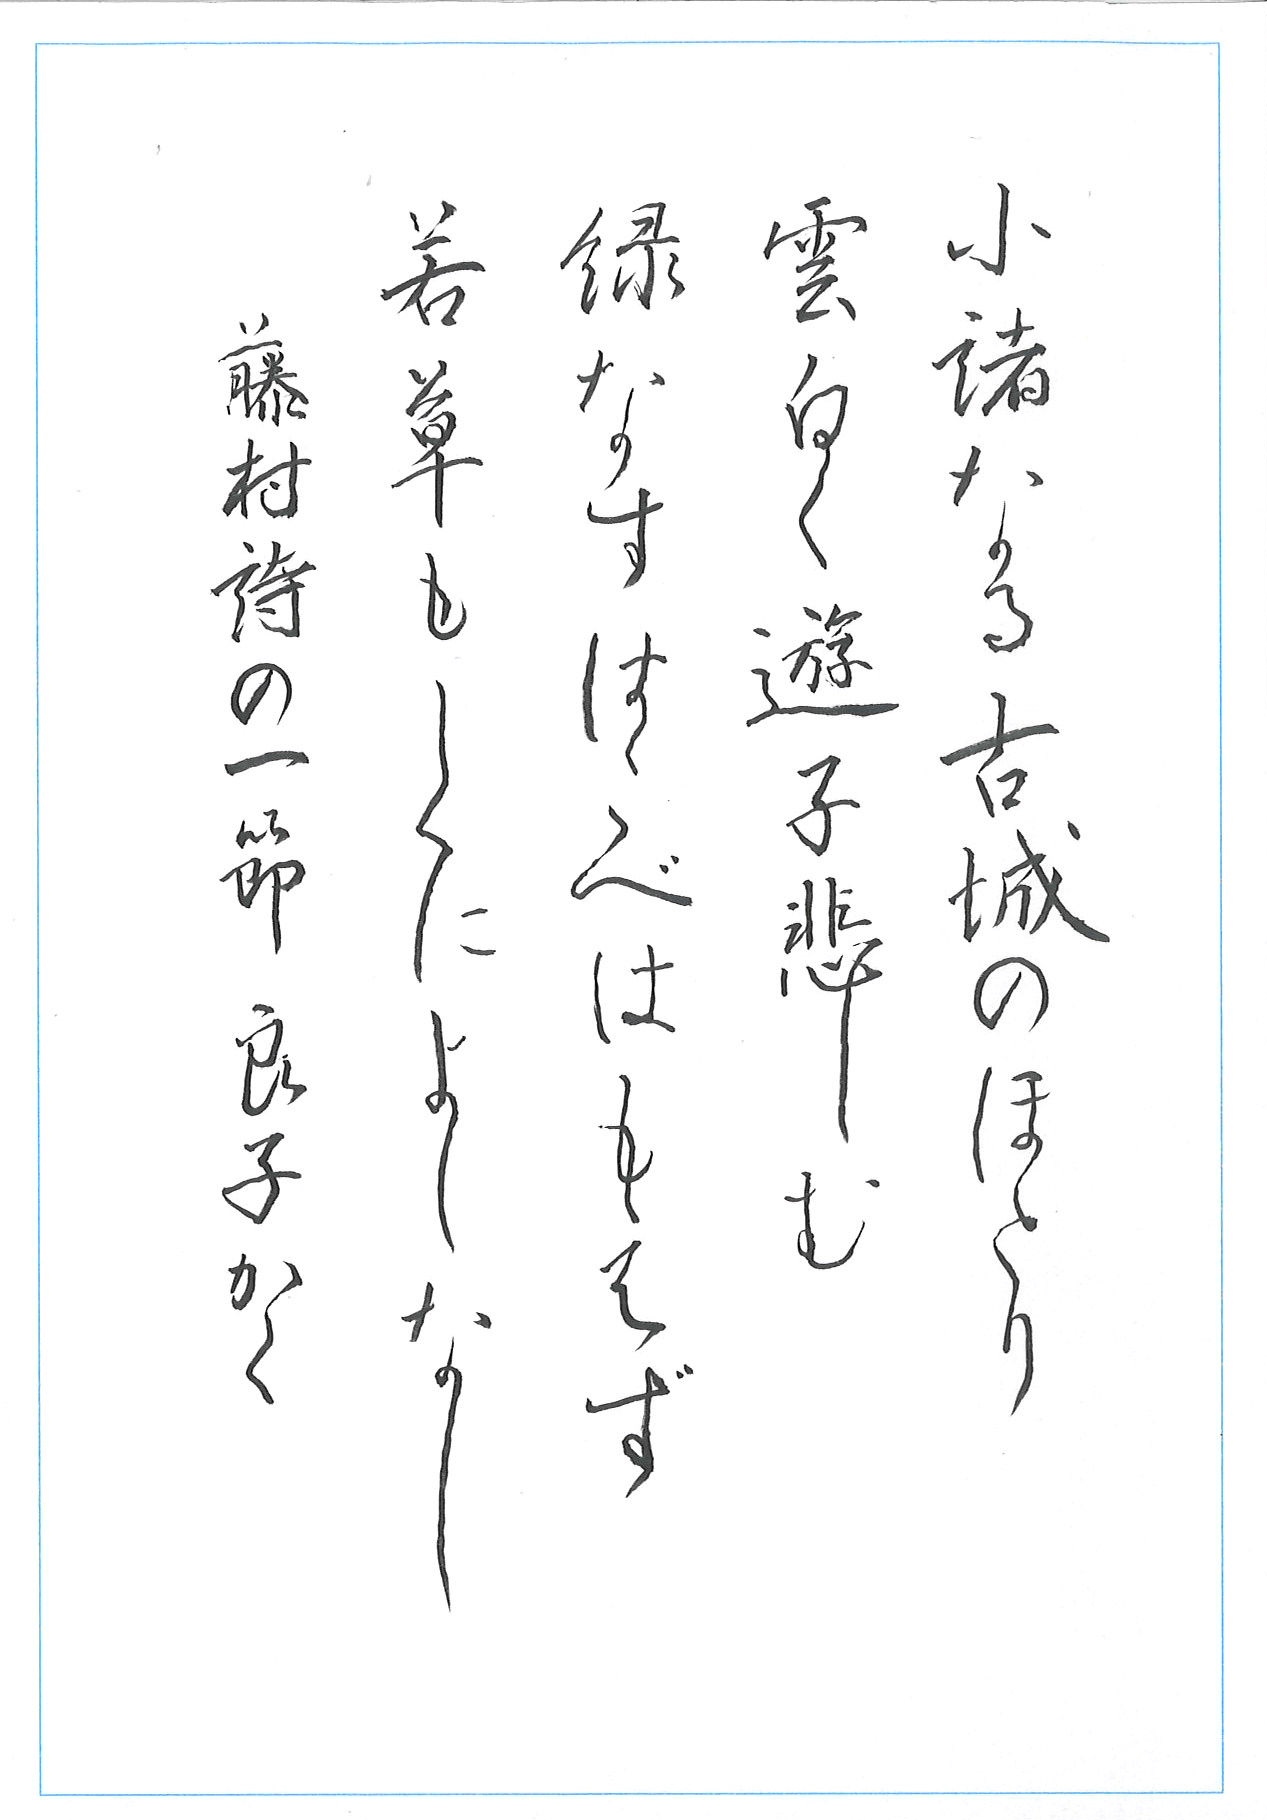 小諸なる古城のほとり
雲白く遊子悲しむ
緑なすはこべはもえず
若草もしくによしなし
藤村詩の一節 良子かく